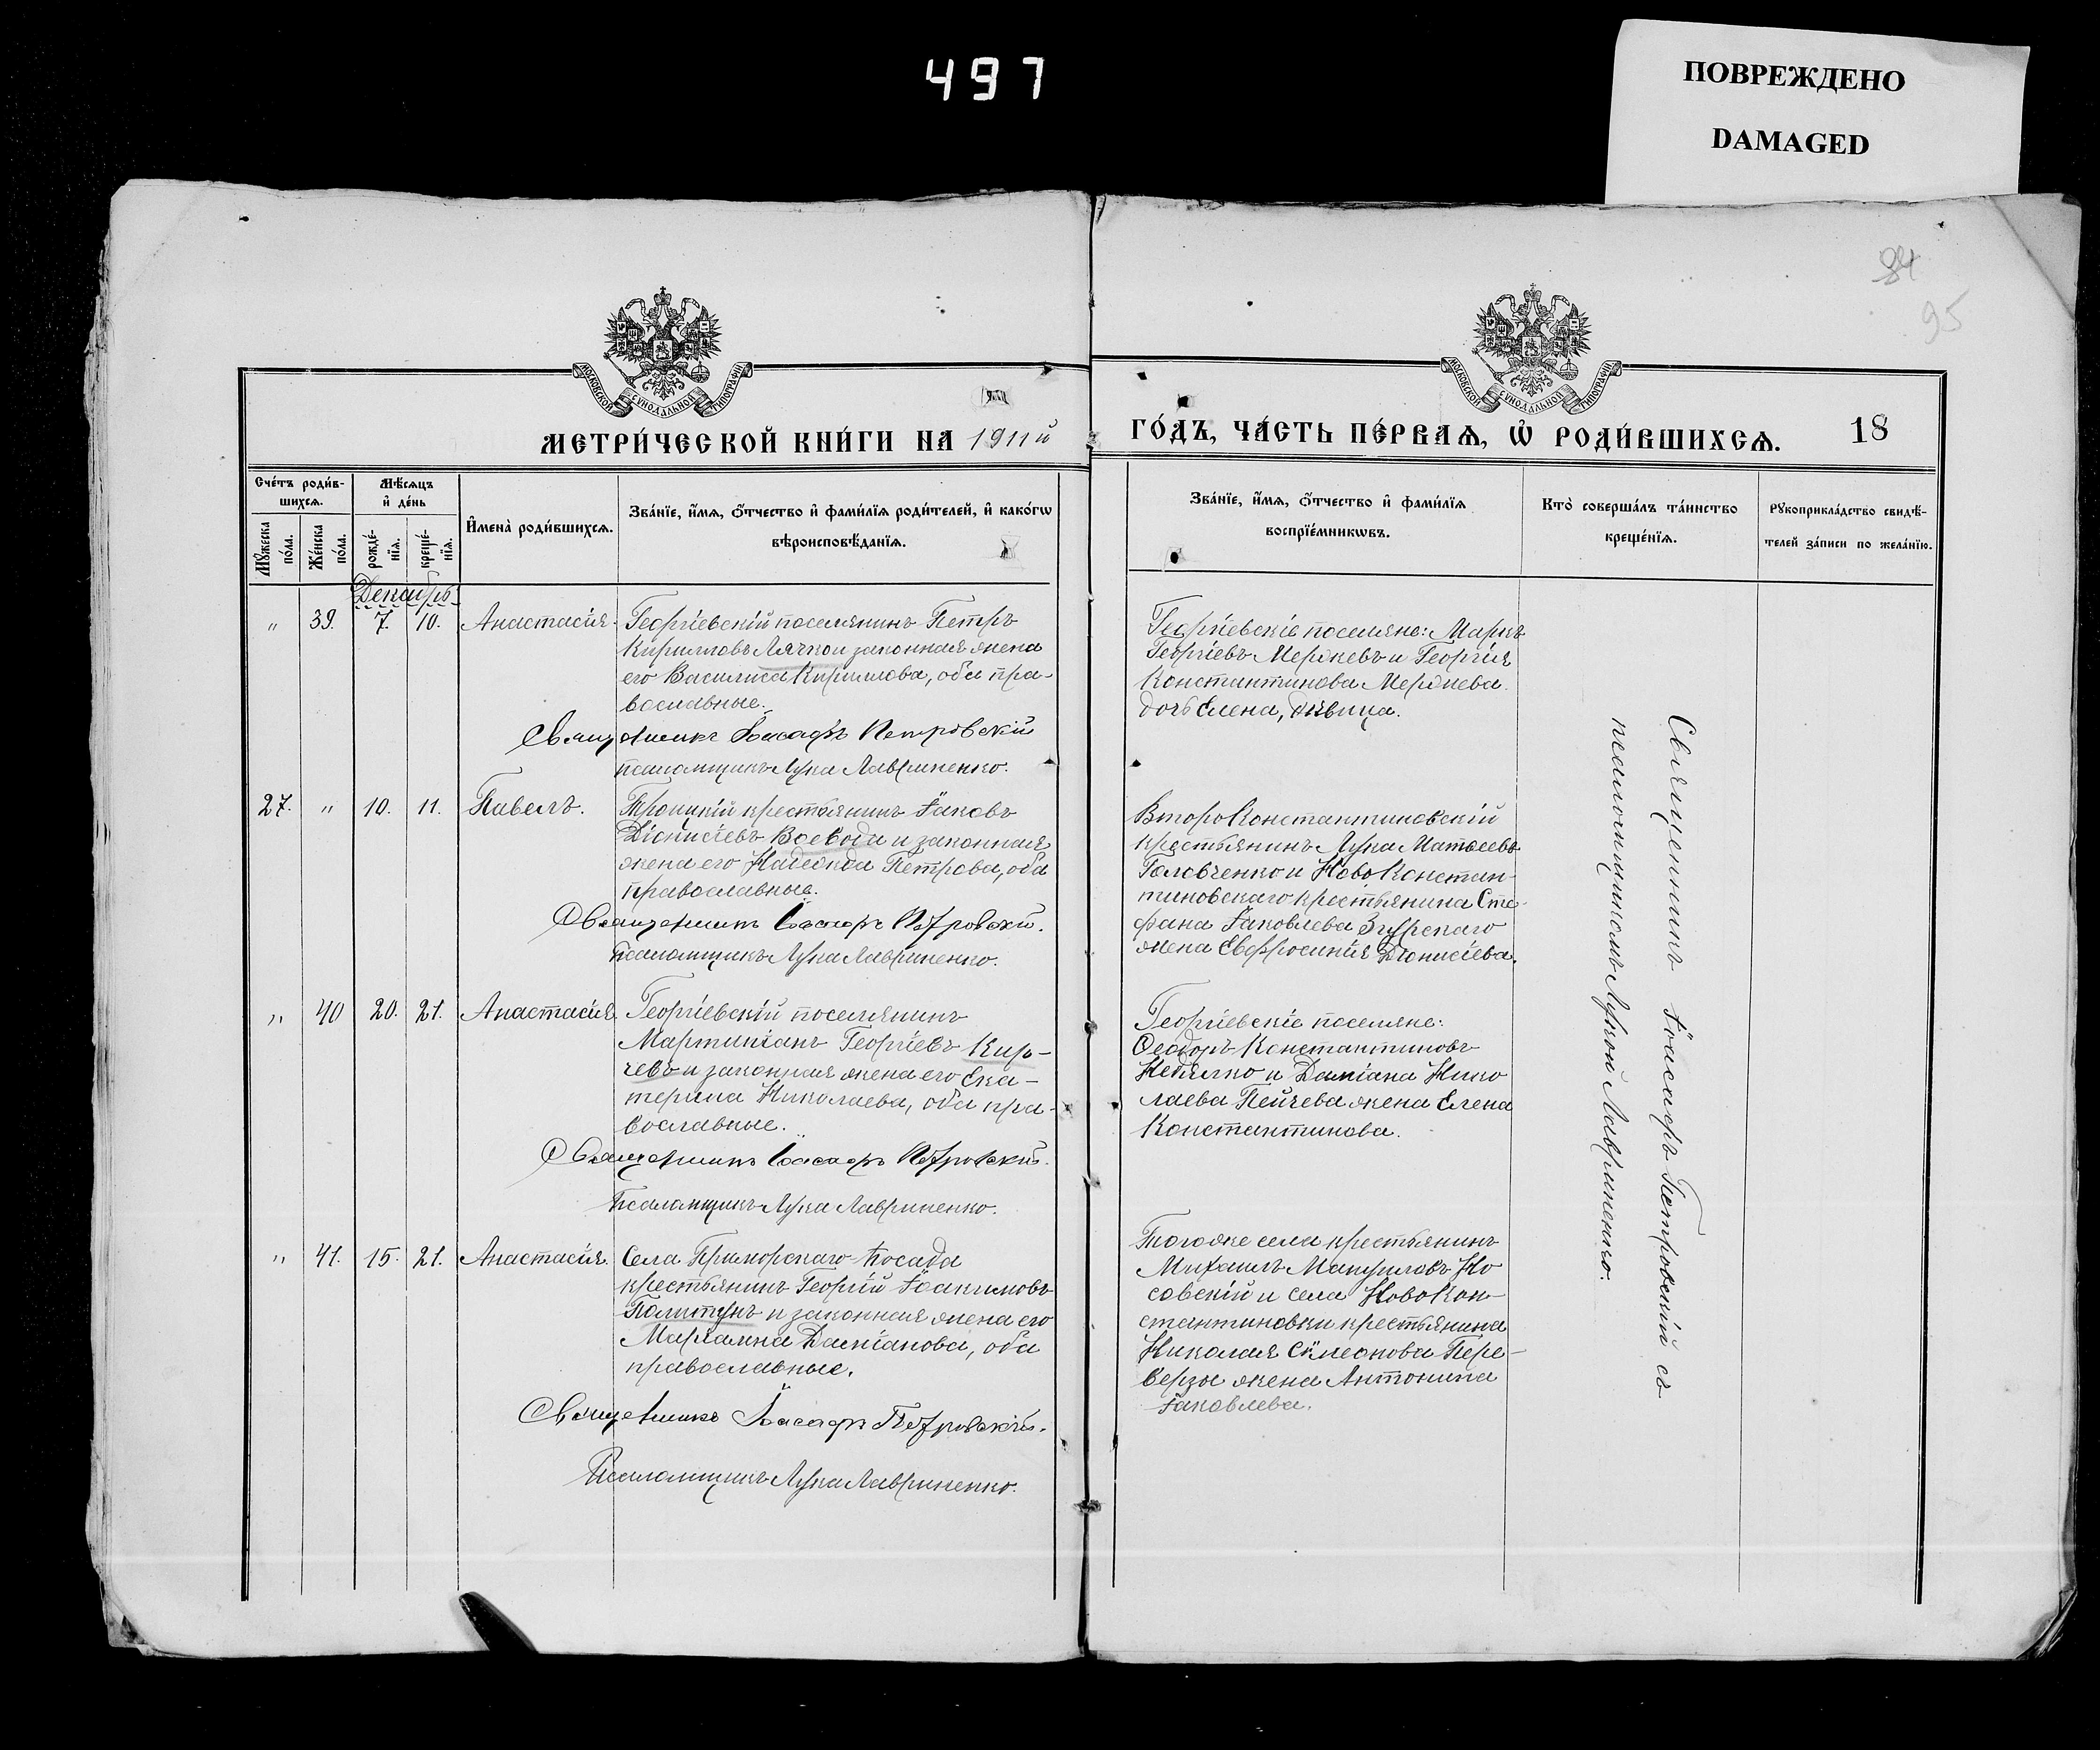 497
ПОВРЕЖДЕНО
DAMAGED
84
95
МОСКОВСКОЙ СѴНОДАЛЬНОЙ ТИПОГРАФІИ
МОСКОВСКОЙ СѴНОДАЛЬНОЙ ТИПОГРАФІИ
МЕТРИ́ЧЕСКОЙ КНИ́ГИ НА 1911й
ГО́ДЪ, ЧА́СТЬ ПЕ́РВАѦ, Ѡ҆ РОДИ́ВШИХСѦ. 18
Сче́тъ роди́в-
шихсѧ.
Мꙋ́жеска
по́ла.
Же́нска
по́ла.
Мѣ́сѧцъ
и҆ де́нь
рожде́-
нїѧ.
креще́-
нїѧ.
И҆мена̀ роди́вшихсѧ.
Зва́нїе, и҆́мѧ, ѻ҆́тчество и҆ фами́лїѧ роди́телей, и҆ како́гѡ
вѣроисповѣ́данїѧ.
Зва́нїе, и҆́мѧ, ѻ҆́тчество и҆ фами́лїѧ
воспрїе́мникѡвъ.
Кто̀ соверша́лъ та́инство
креще́нїѧ.
Рꙋкоприкла́дство свидѣ́-
телей за́писи по жела́нїю.
Декабрь
" 39. 7. 10. Анастасія. Георгіевскій поселянинъ Петръ
Кирилловъ Лячко и законная жена
его Василиса Кириллова, оба пра-
вославные.
Священникъ Іоасафъ Петровскій
псаломщикъ Лука Лавриненко.
Георгіевскіе поселяне: Маркъ
Георгіевъ Мержевъ и Георгія
Константинова Мержева
дочь Елена, дѣвица.
27. " 10. 11. Павелъ. Троицкій крестьянинъ Іаковъ
Діонисіевъ Воевода и законная
жена его Надежда Петрова, оба
православные.
Священникъ Іоасафъ Петровскій.
псаломщикъ Лука Лавриненко.
ВтороКонстантиновскій
крестьянинъ Лука Матѳеевъ
Головченко и НовоКонстан-
тиновскаго крестьянина Сте-
фана Іаковлева Згурскаго
жена Евфросинія Діонисіева.
" 40 20. 21. Анастасія. Георгіевскій поселянинъ
Мартиніанъ Георгіевъ Кир-
чевъ и законная жена его Ека-
терина Николаева, оба пра-
вославные.
Священникъ Іоасафъ Петровскій.
Псаломщикъ Лука Лавриненко.
Георгіевскіе поселяне:
Ѳеодоръ Константиновъ
Недялко и Даміана Нико
лаева Пейчева жена Елена
Константинова.
" 41. 15. 21. Анастасія. Села Приморскаго Посада
крестьянинъ Георгій Іоакимовъ
Палитунъ и законная жена его
Маріамна Даміанова, оба
православные.
Священникъ Іоасафъ Петровскій.
Псаломщикъ Лука Лавриненко.
Тогоже села крестьянинъ
Михаилъ Мануиловъ Но
совскій и села НовоКон-
стантиновки крестьянина
Николая Сѵмеонова Пере-
верзы жена Антонина
Іаковлева.
Священникъ Іоасафъ Петровскій съ
псаломщикомъ Лукой Лавриненко.